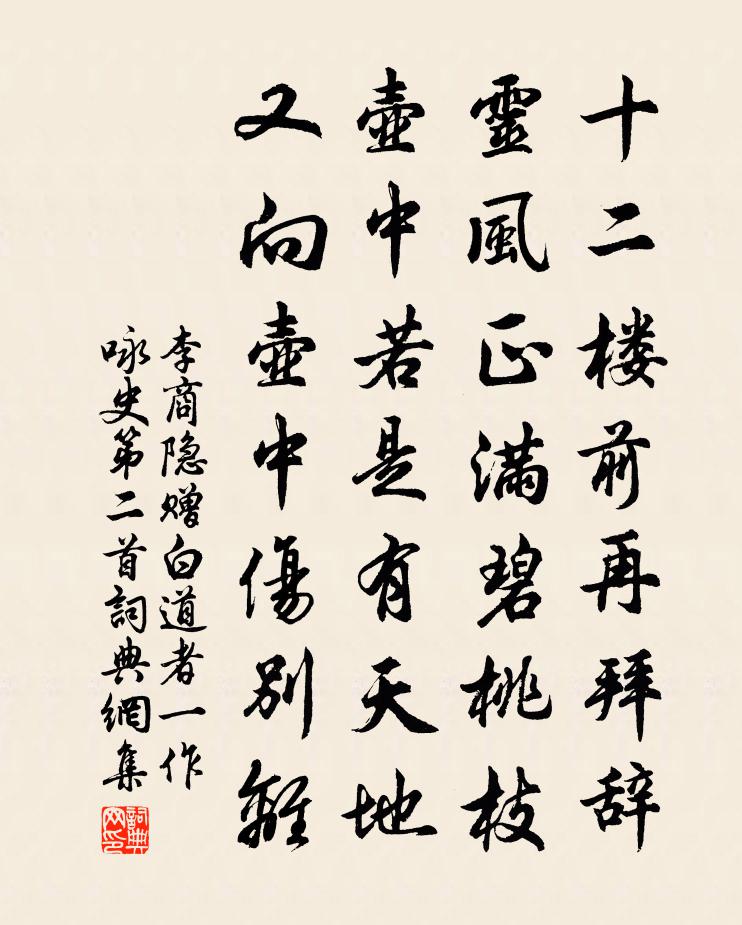 十二楼前再拜辞
靈風正滿碧桃枝
壺中若是有天地
又向壺中傷別離
李商隐赠白道者一作
咏史第二首詞典網集
詞典网印